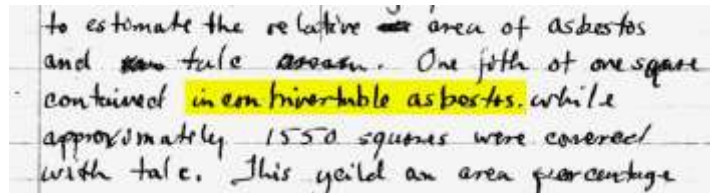 to estomate the relative area of asbestos
and talc. One fifth of one sqare
contained incontrivertable asbestos. while
approximately 1550 squares were covered
with talc. This yeild an area percentage